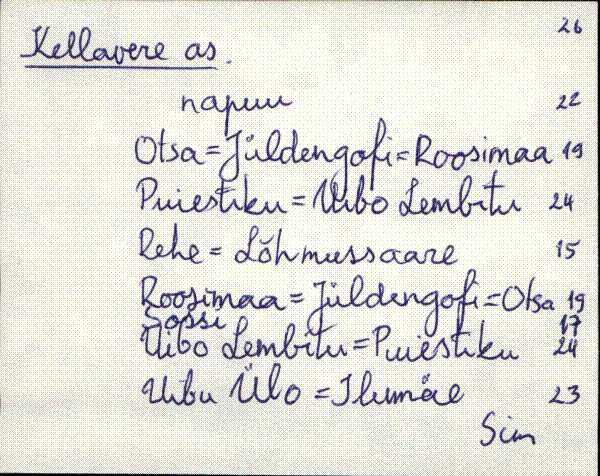 26
Kellavere as.
22
Otsa=Jüldengofi=Roosimaa 19
Puiestiku=Uibo Lembitu 24
Rehe=Lõhmussaare 15
Roosimaa=Jüldengofi=Otsa 19
Soossi 17
Uibo Lembitu=Puiestiku 24
Uibu Ülo=Ilumäe 23
Sim